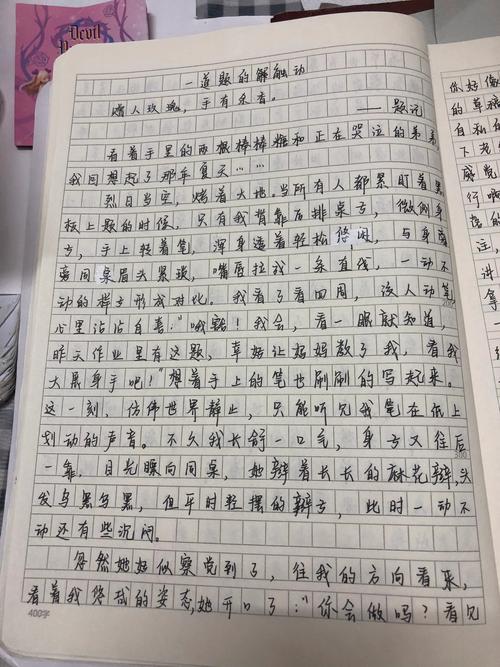 Devil
一道题的解触动
赠人玫瑰，手有余香。
——题记
看着手里的两根棒棒糖和正在哭泣的弟弟
我回想起了那年夏天……
烈日当空，烤着大地。当所有人都紧盯着黑
板上题的时候，只有我背靠后排桌子，微侧身
子，手上转着笔，浑身透着轻松悠闲，与身
旁同桌眉头紧锁，嘴唇拉成一条直线，一动不
动的样子形成对比。我看了看四周，没人动笔，
心里沾沾自喜："哦豁！我会，看一眼就知道，
昨天作业里有这题，幸好让妈妈教了我，看我
大展身手吧！"想着手上的笔也刷刷的写起来。
这一刻，仿佛世界静止，只能听见我笔在纸上
划动的声音。不久我长舒一口气，身子又往后
一靠，目光瞟向同桌，她辫着长长的麻花辫，头
发乌黑乌黑，但平时轻摆的辫子，此时一动不
动还有些沉闷。
忽然她好似察觉到了，往我的方向看来，
看着我悠哉的姿态，她开口了："你会做吗？看见
400字
300
你好像
的草稿
自私的
下龙
感觉
行啊
的
注
讲
拿